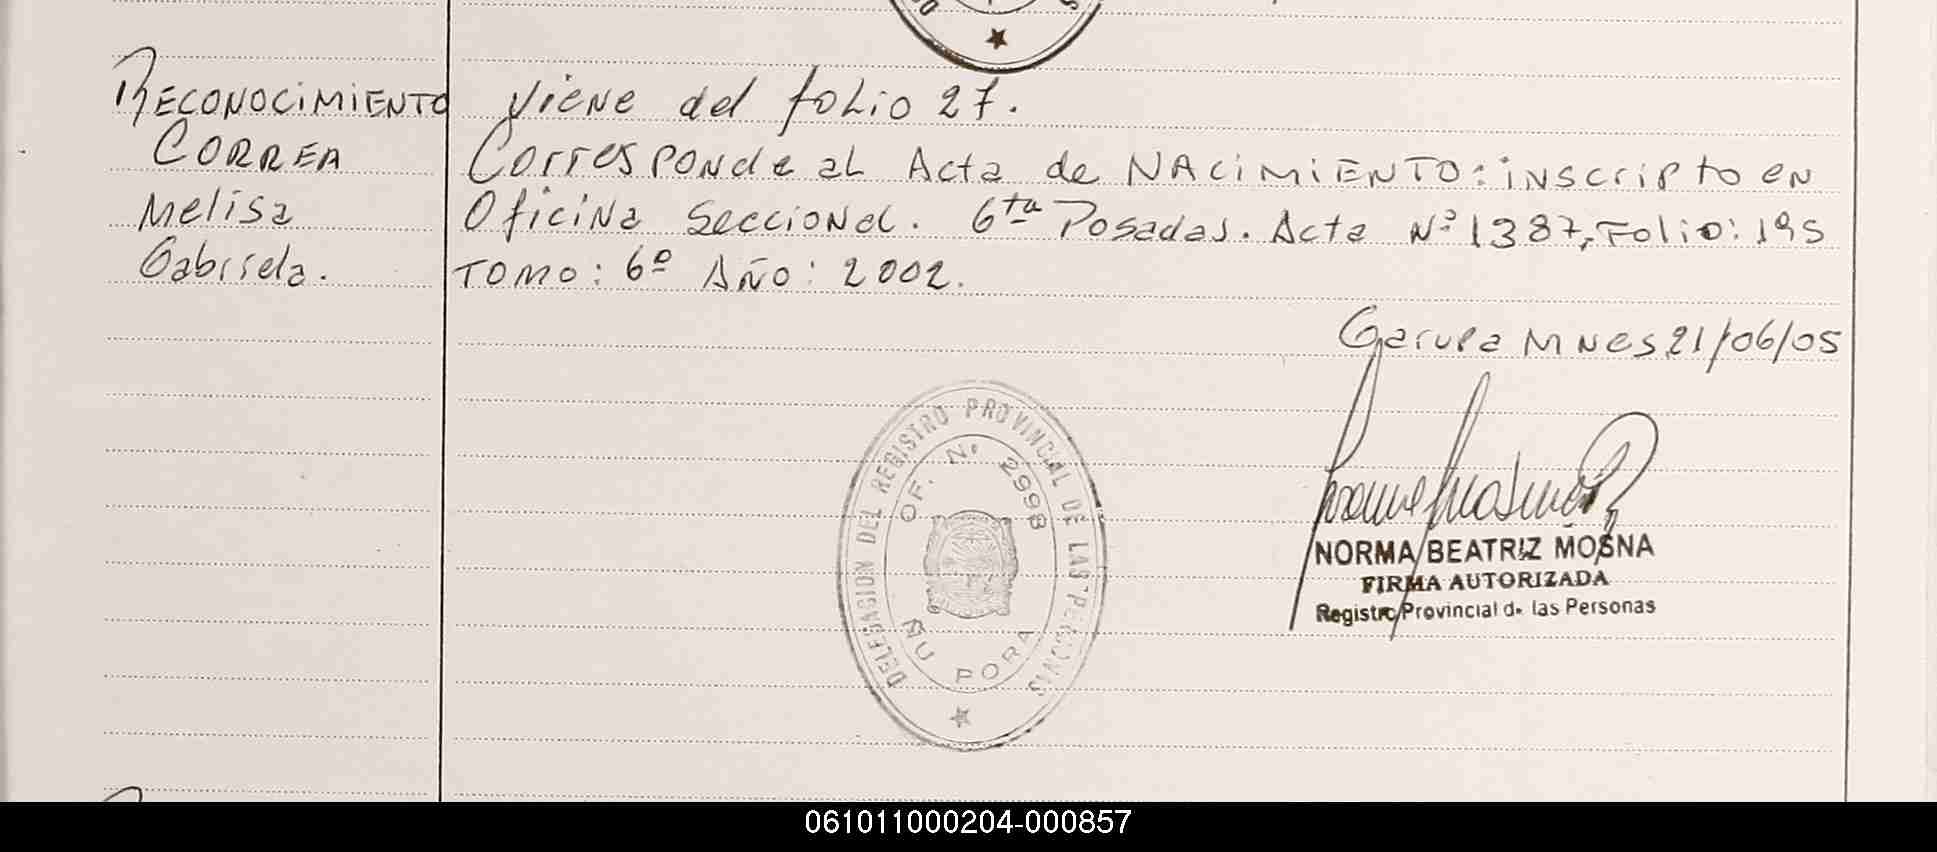 Reconocimiento
Correa
Melisa
Gabriela.
Viene del folio 27.
Corresponde al Acta de NACIMIENTO: inscripto en
Oficina Seccional. 6ta Posadas. Acta Nº 1387, Folio: 195
TOMO: 6º AÑO: 2002.
Garupa MNES, 21/06/05
DELEGASION DEL REGISTRO PROVINCIAL DE LAS PERSONAS
OF. Nº 2998
ÑU PORA
NORMA BEATRIZ MOSNA
FIRMA AUTORIZADA
Registro Provincial de las Personas
061011000204-000857